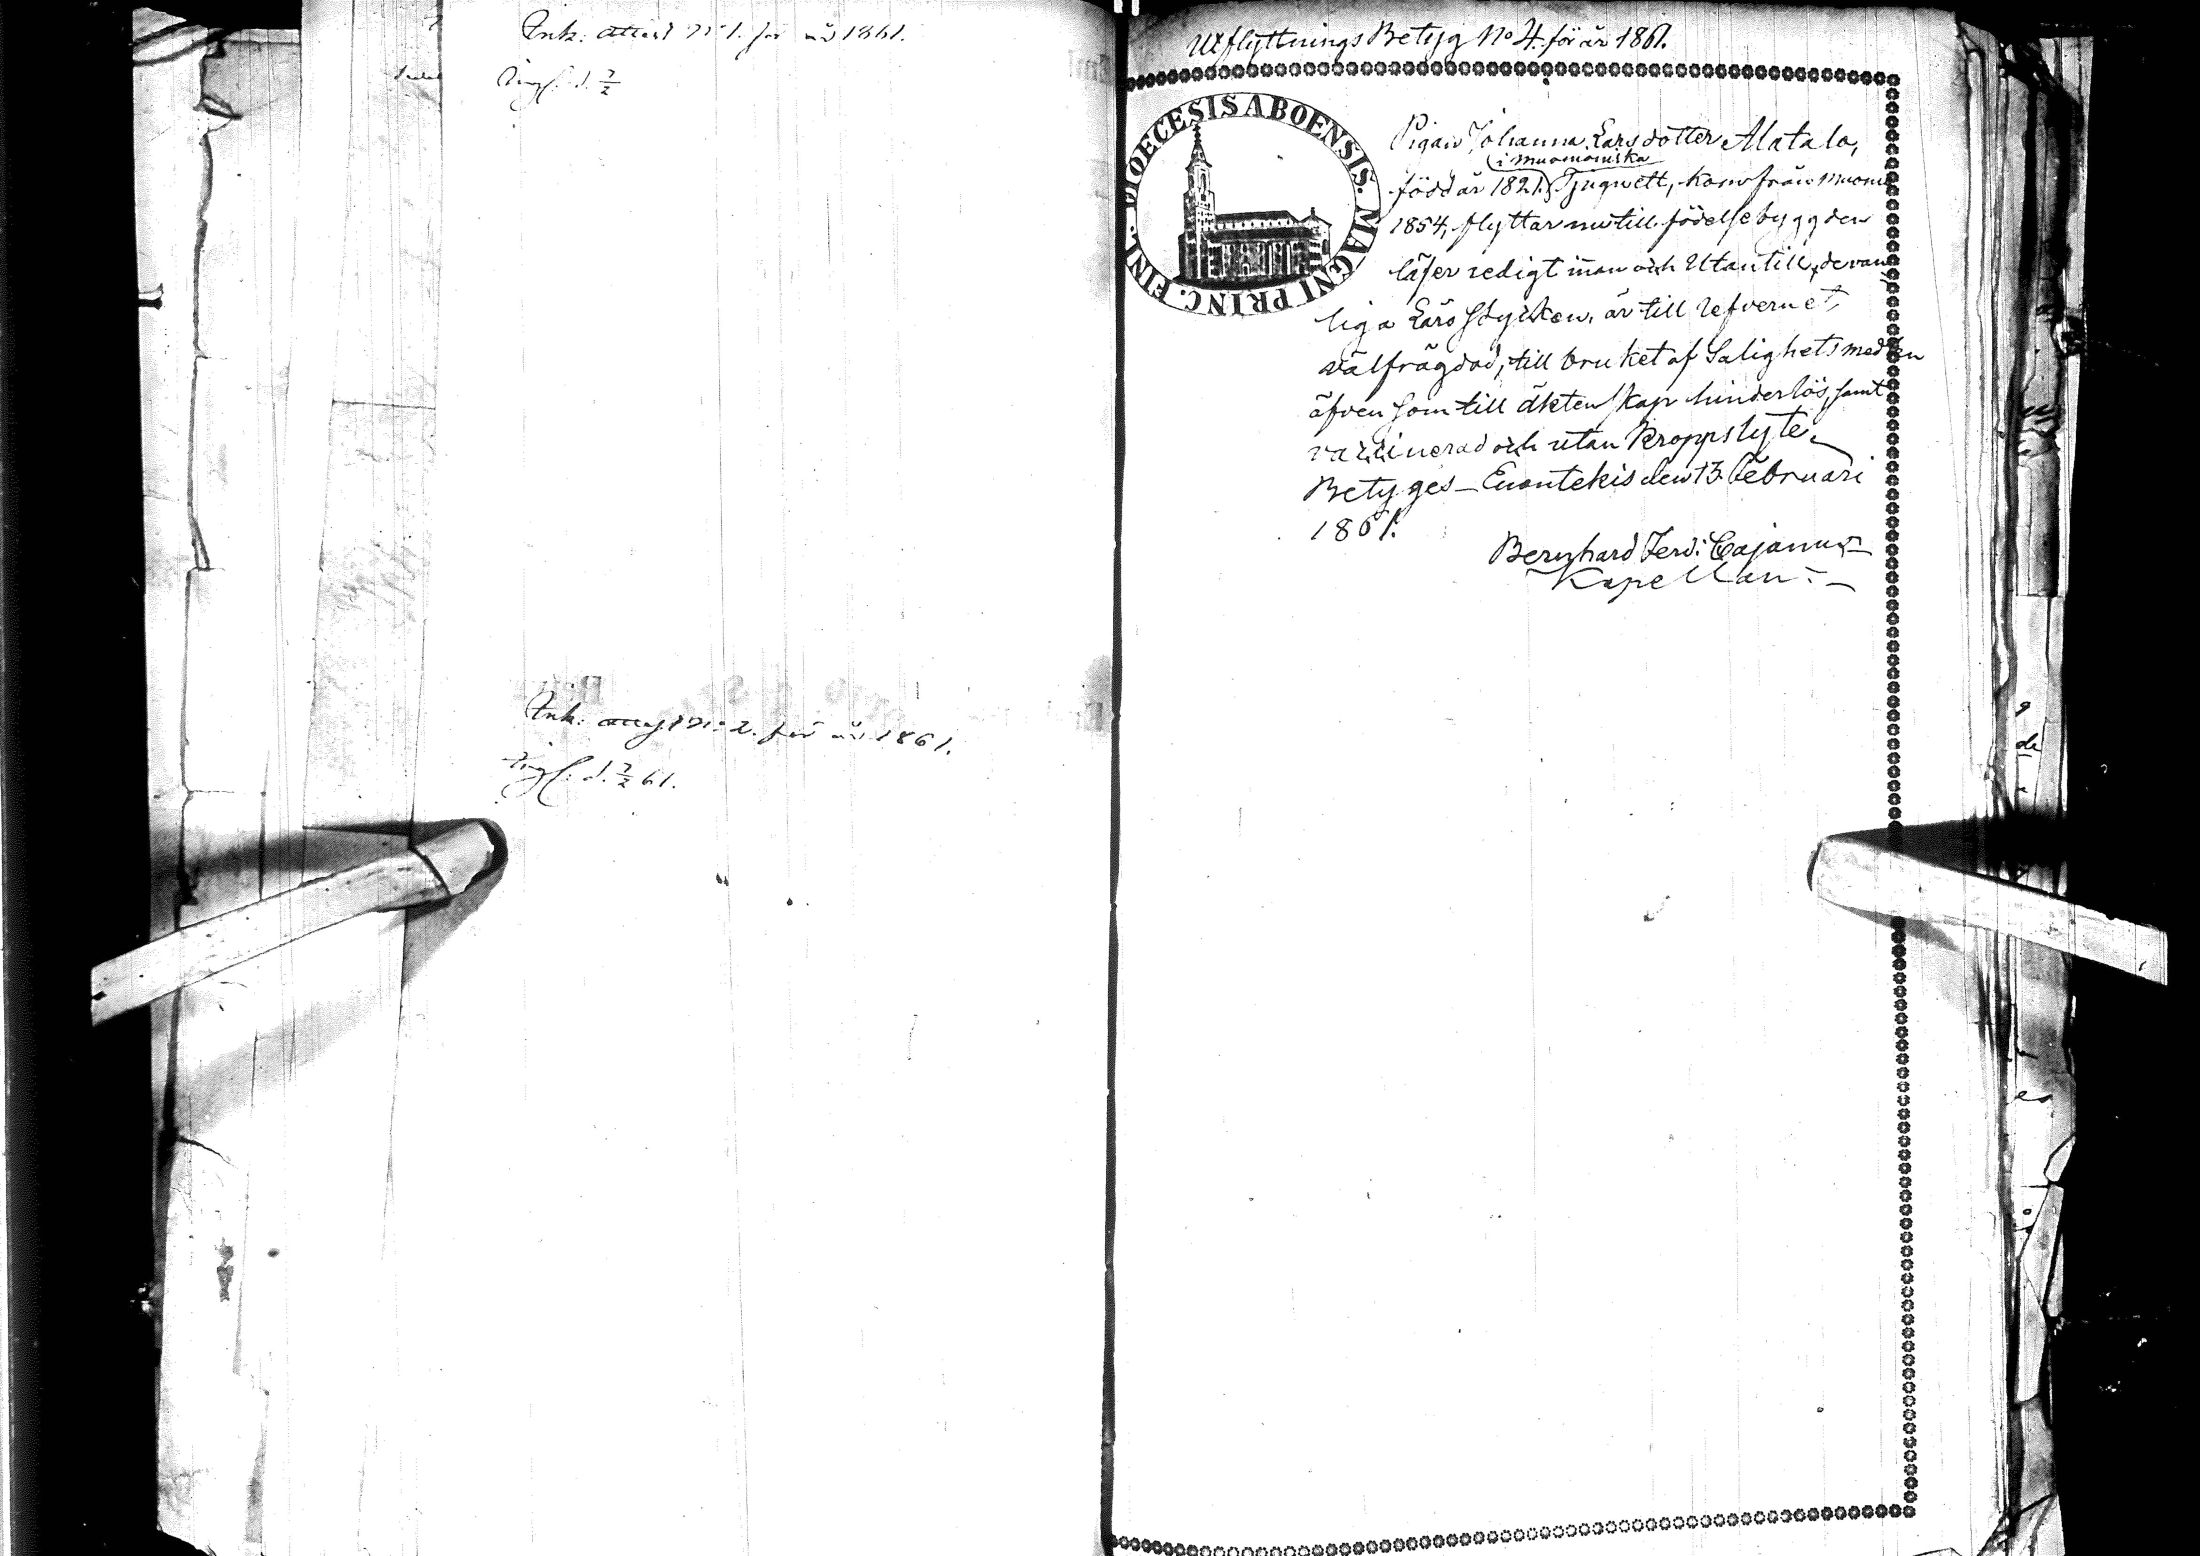 Ink: attest No 1. för år 1861.
Ingf. d. 7/2
Ink. attest No 2. för år 1861.
Ingf. d. 7/2 61.
Utflyttnings Betyg No 4. för år 1861.
DIOECESIS ABOENSIS. MAGNI PRINC. FINL.
Pigan Johanna Larsdotter Alatalo,
i muonioniska
född år 1821. Tjuguett, kom från muonio
1854, flyttar nu till födelsebyggden
läser redigt innan och Utantill, de van
liga Läro Stycken, är till lefvernet,
välfrägdad, till bruket af Salighetsmedlen
äfven som till äktenskap hinderlös, samt
vaccinerad och utan kroppslyte.
Betyges – Enontekis den 13 Februari
1861.
Bernhard Ferd: Cajanus
Kapellan